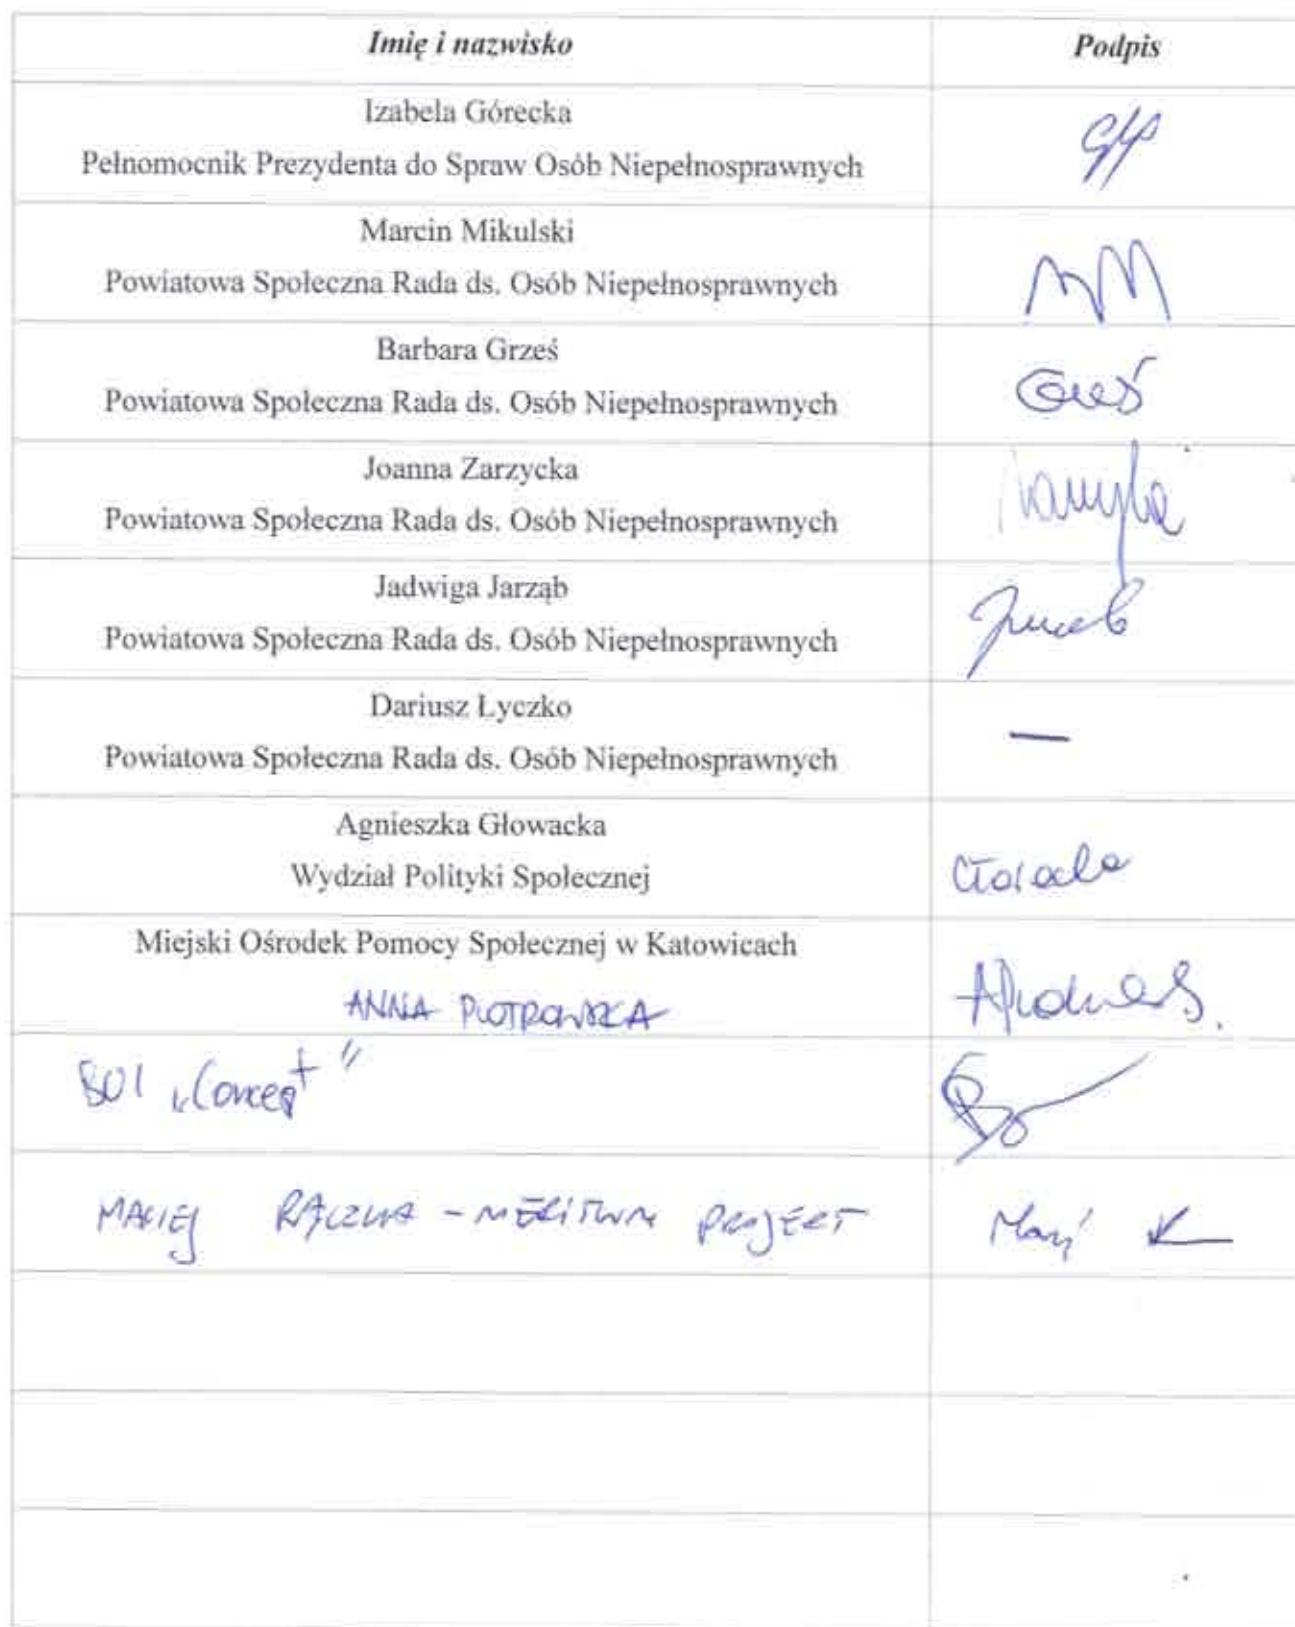 Imię i nazwisko Podpis
Izabela Górecka
Pełnomocnik Prezydenta do Spraw Osób Niepełnosprawnych
Marcin Mikulski
Powiatowa Społeczna Rada ds. Osób Niepełnosprawnych
Barbara Grześ
Powiatowa Społeczna Rada ds. Osób Niepełnosprawnych
Joanna Zarzycka
Powiatowa Społeczna Rada ds. Osób Niepełnosprawnych
Jadwiga Jarząb
Powiatowa Społeczna Rada ds. Osób Niepełnosprawnych
Dariusz Łyczko
Powiatowa Społeczna Rada ds. Osób Niepełnosprawnych
—
Agnieszka Głowacka
Wydział Polityki Społecznej
Miejski Ośrodek Pomocy Społecznej w Katowicach
ANNA PIOTROWSKA
BOI „Concept"
MACIEJ - MERITUM PROJEKT